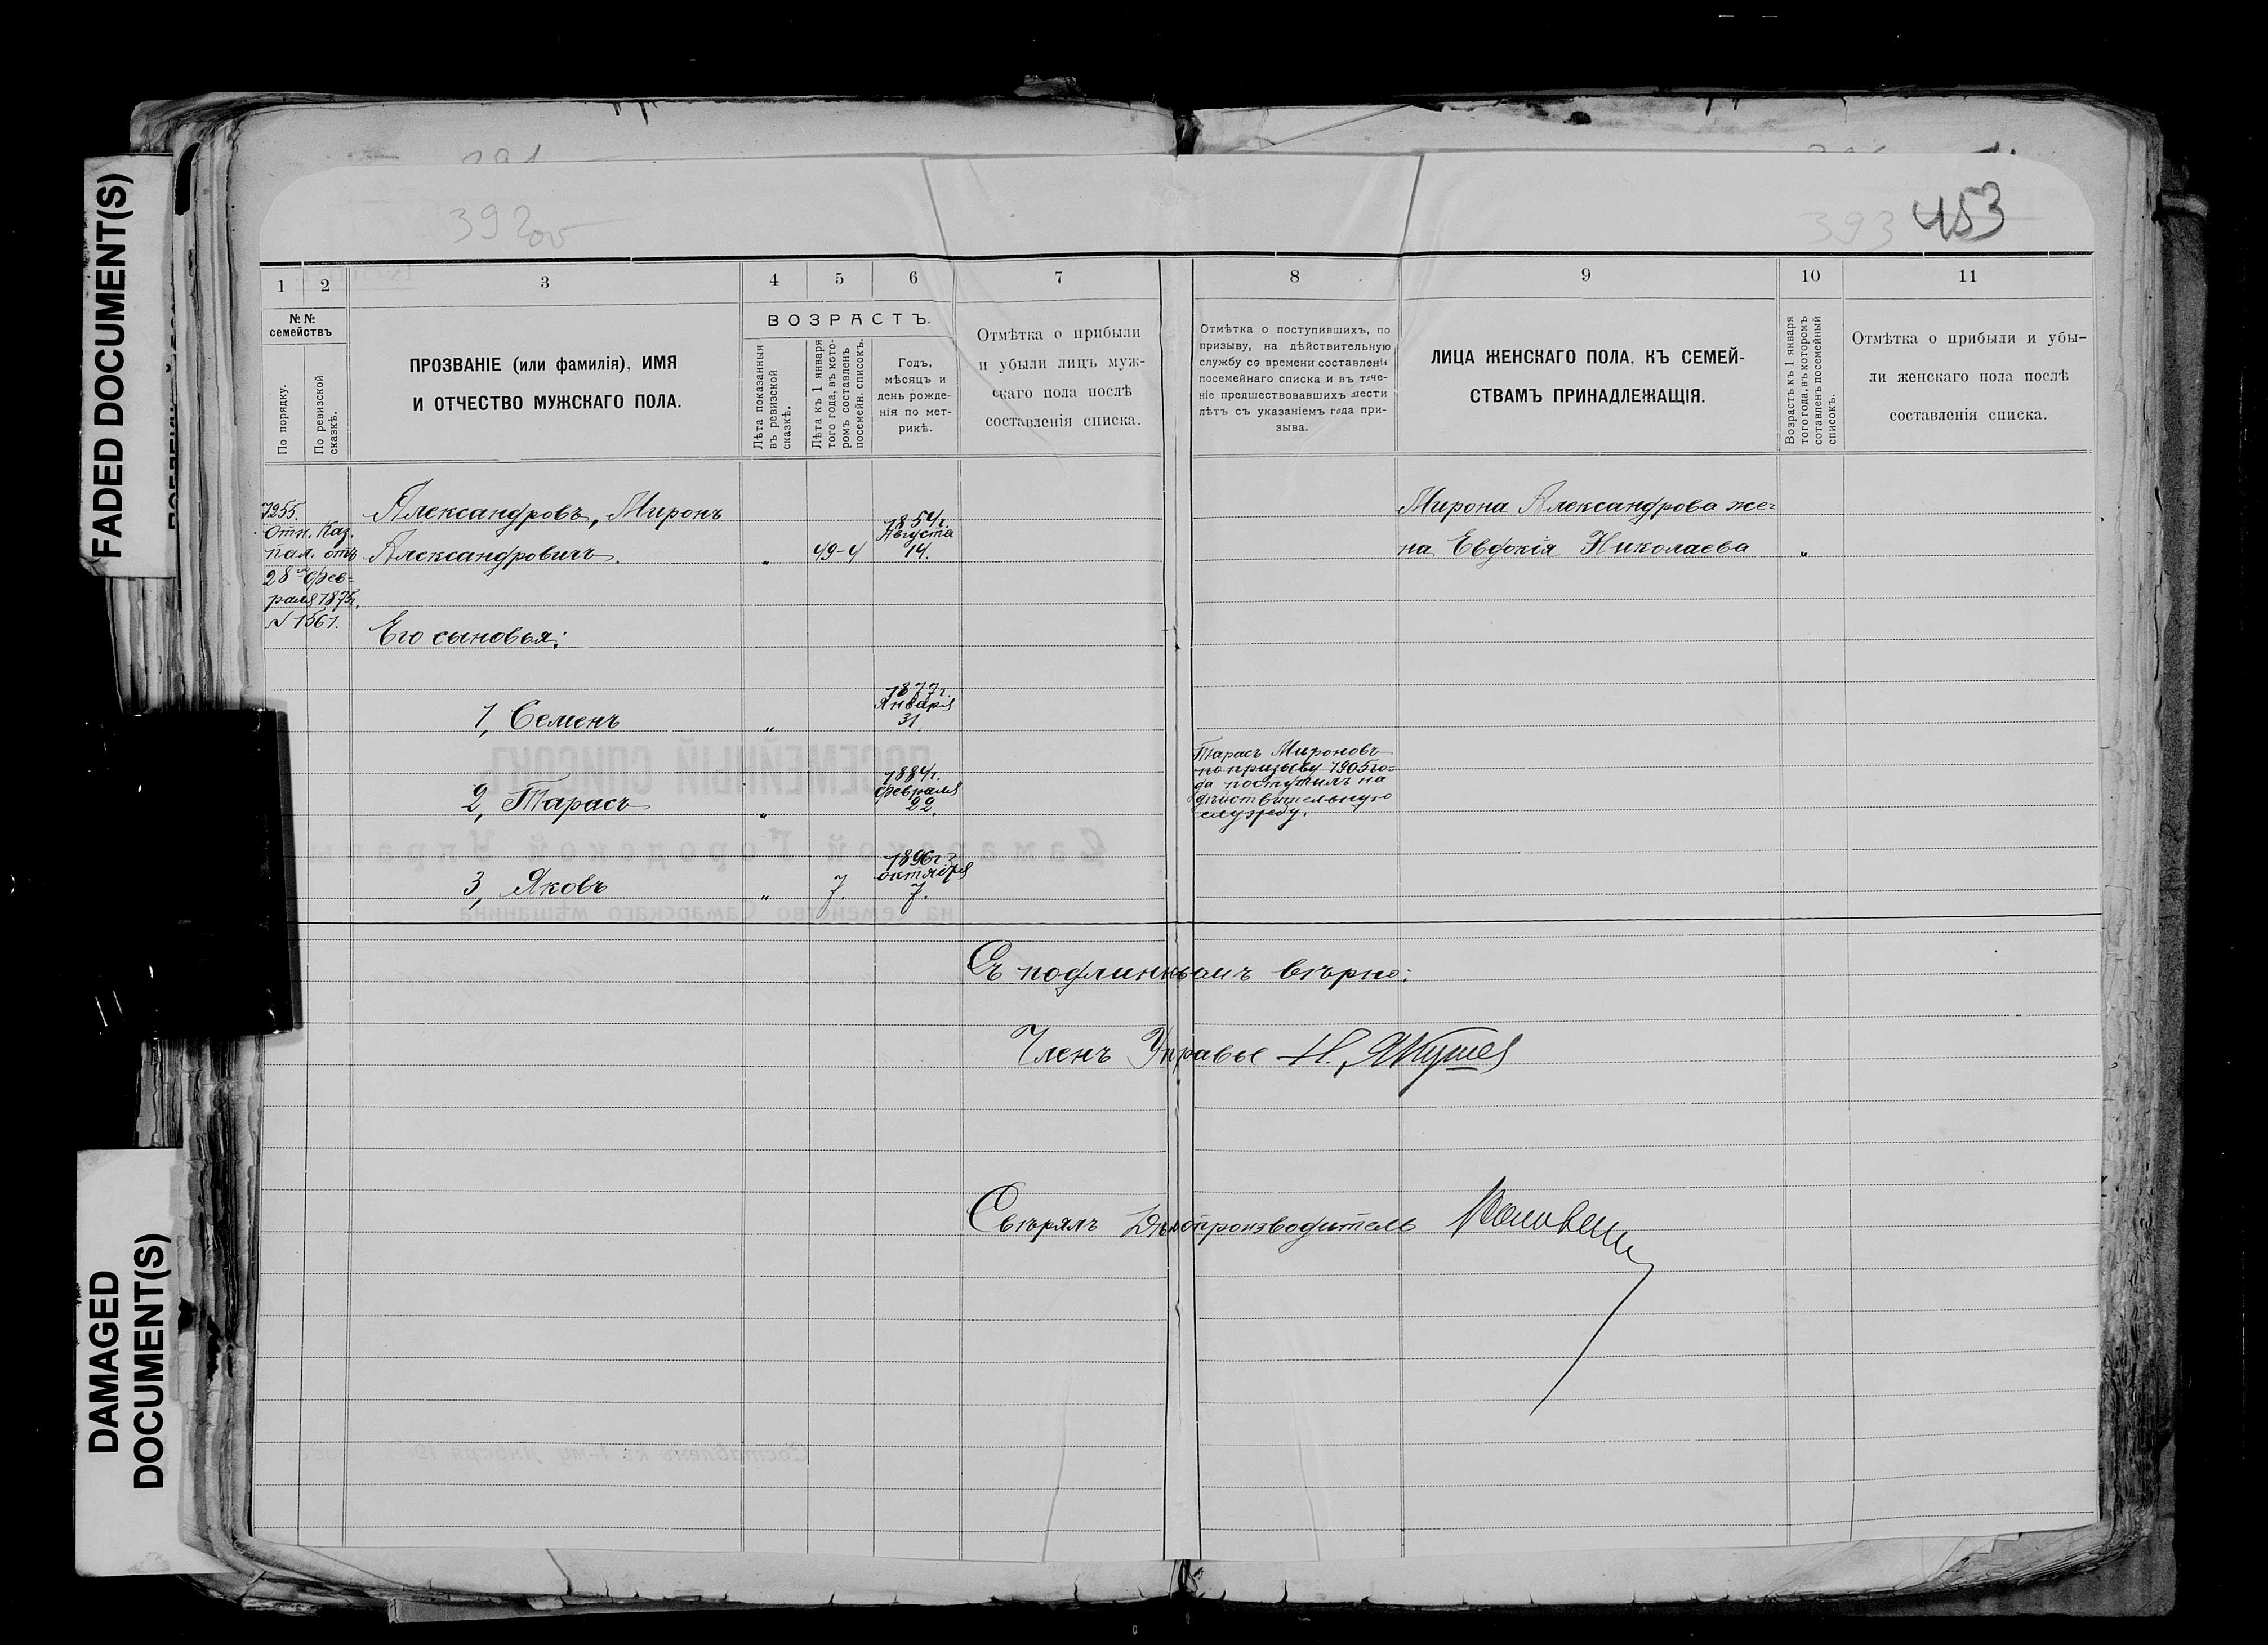 FADED DOCUMENT(S)
DAMAGED
DOCUMENT(S)
392 об
393 453
1 2 3 4 5 6 7 8 9 10 11
№№
семействъ
По порядку.
По ревизской
сказкѣ.
ПРОЗВАНІЕ (или фамилія), ИМЯ
И ОТЧЕСТВО МУЖСКАГО ПОЛА.
ВОЗРАСТЪ.
Лѣта показанныя
въ ревизской
сказкѣ.
Лѣта къ 1 января
того года, въ кото-
ромъ составленъ
посемейн. списокъ.
Годъ,
мѣсяцъ и
день рожде-
нія по мет-
рикѣ.
Отмѣтка о прибыли
и убыли лицъ муж-
скаго пола послѣ
составленія списка.
Отмѣтка о поступившихъ, по
призыву, на дѣйствительную
службу со времени составленія
посемейнаго списка и въ тече-
ніе предшествовавшихъ шести
лѣтъ съ указаніемъ года при-
зыва.
ЛИЦА ЖЕНСКАГО ПОЛА, КЪ СЕМЕЙ-
СТВАМЪ ПРИНАДЛЕЖАЩІЯ.
Возрастъ къ 1 января
того года, въ которомъ
сотавленъ посемейный
списокъ.
Отмѣтка о прибыли и убы-
ли женскаго пола послѣ
составленія списка.
7255.
Отн. Каз.
пал. отъ
28го фев-
раля 1875г.
№ 1561.
Александровъ, Миронъ
Александровичъ. „ 49-4
1854г.
Августа
14.
Мирона Александрова же-
на Евдокія Николаева „
Его сыновья:
1, Семенъ „
1877г.
Января
31.
2, Тарасъ „
1884г.
февраля
22.
Тарасъ Мироновъ
по призыву 1905 го-
да поступилъ на
дѣйствительную
службу.
3, Яковъ „ 7.
1896г.
октября
7.
Съ подлиннымъ вѣрно:
Членъ Управы Н. Якушев
Свѣрялъ Дѣлопроизводитель